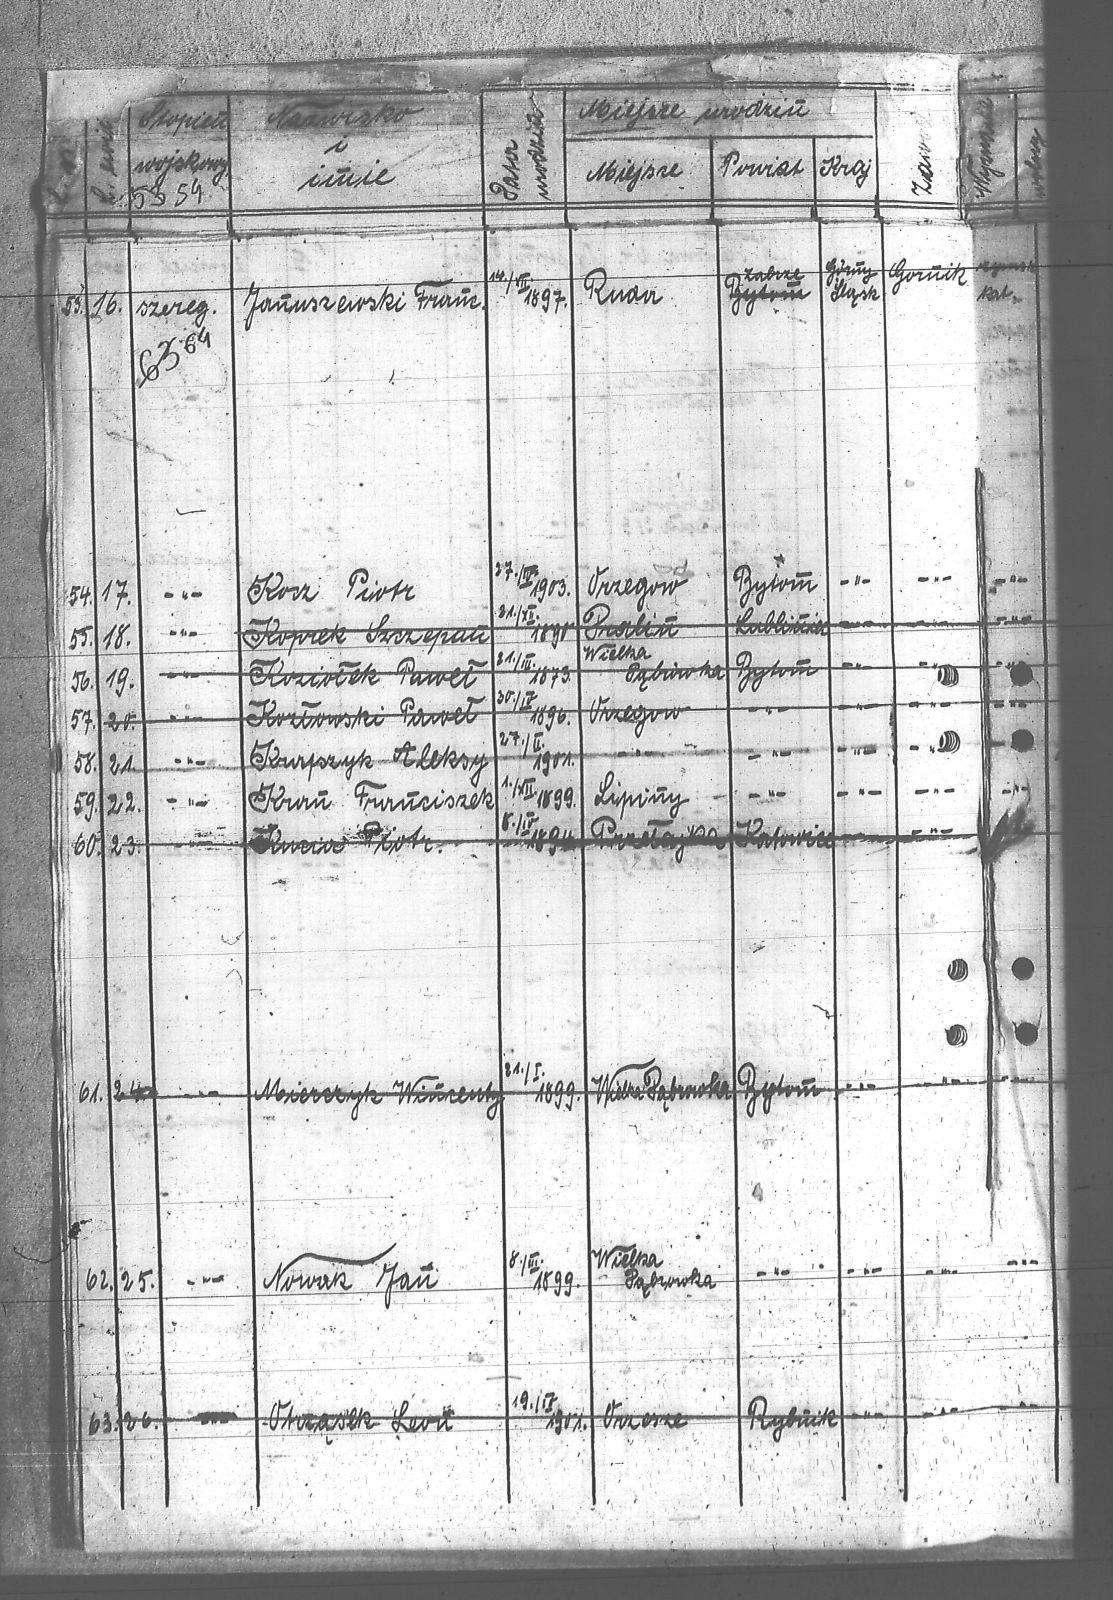 Stopień wojskowy Nazwisko i imie Data urodzin Miejsce urodzin
Miejsce Powiat Kraj
53 54
53. 16. szereg. Januszewski Franc. 14./VII 1897. Ruda Zabrze Bytom Górny Śląsk Gornik kat.
63 64
54. 17. -"- Kocz Piotr 27./VI. 1903. Orzegow Bytom -"- -"- -"-
55. 18. -"- Koprek Szczepan 1890 Lubliniec -"- -"- -"-
56. 19. -"- Koziołek Paweł 21./III. 1873. Wielka Dąbrowka Bytom -"- -"-
57. 20. -"- Kozłowski Paweł 30./IV 1896. Orzegow -"- -"- -"- -"-
58. 21. -"- Krupczyk Aleksy 27./II. 1901. -"- -"- -"- -"-
59. 22. -"- Kran Franciszek 1./VII 1899. Lipiny -"- -"- -"- -"-
60. 23. Piotr. Przełajka Katowice -"-
61. 24. -"- Mierczyk Wincenty 21./I. 1899. Wielka Dąbrowka Bytom -"- -"- -"-
62. 25. -"- Nowak Jan 8./III. 1899. Wielka Dąbrowka -"- -"- -"- -"-
63. 26. Otrząsek Leon 19./IV 1901. Orzesze Rybnik -"- -"- -"-